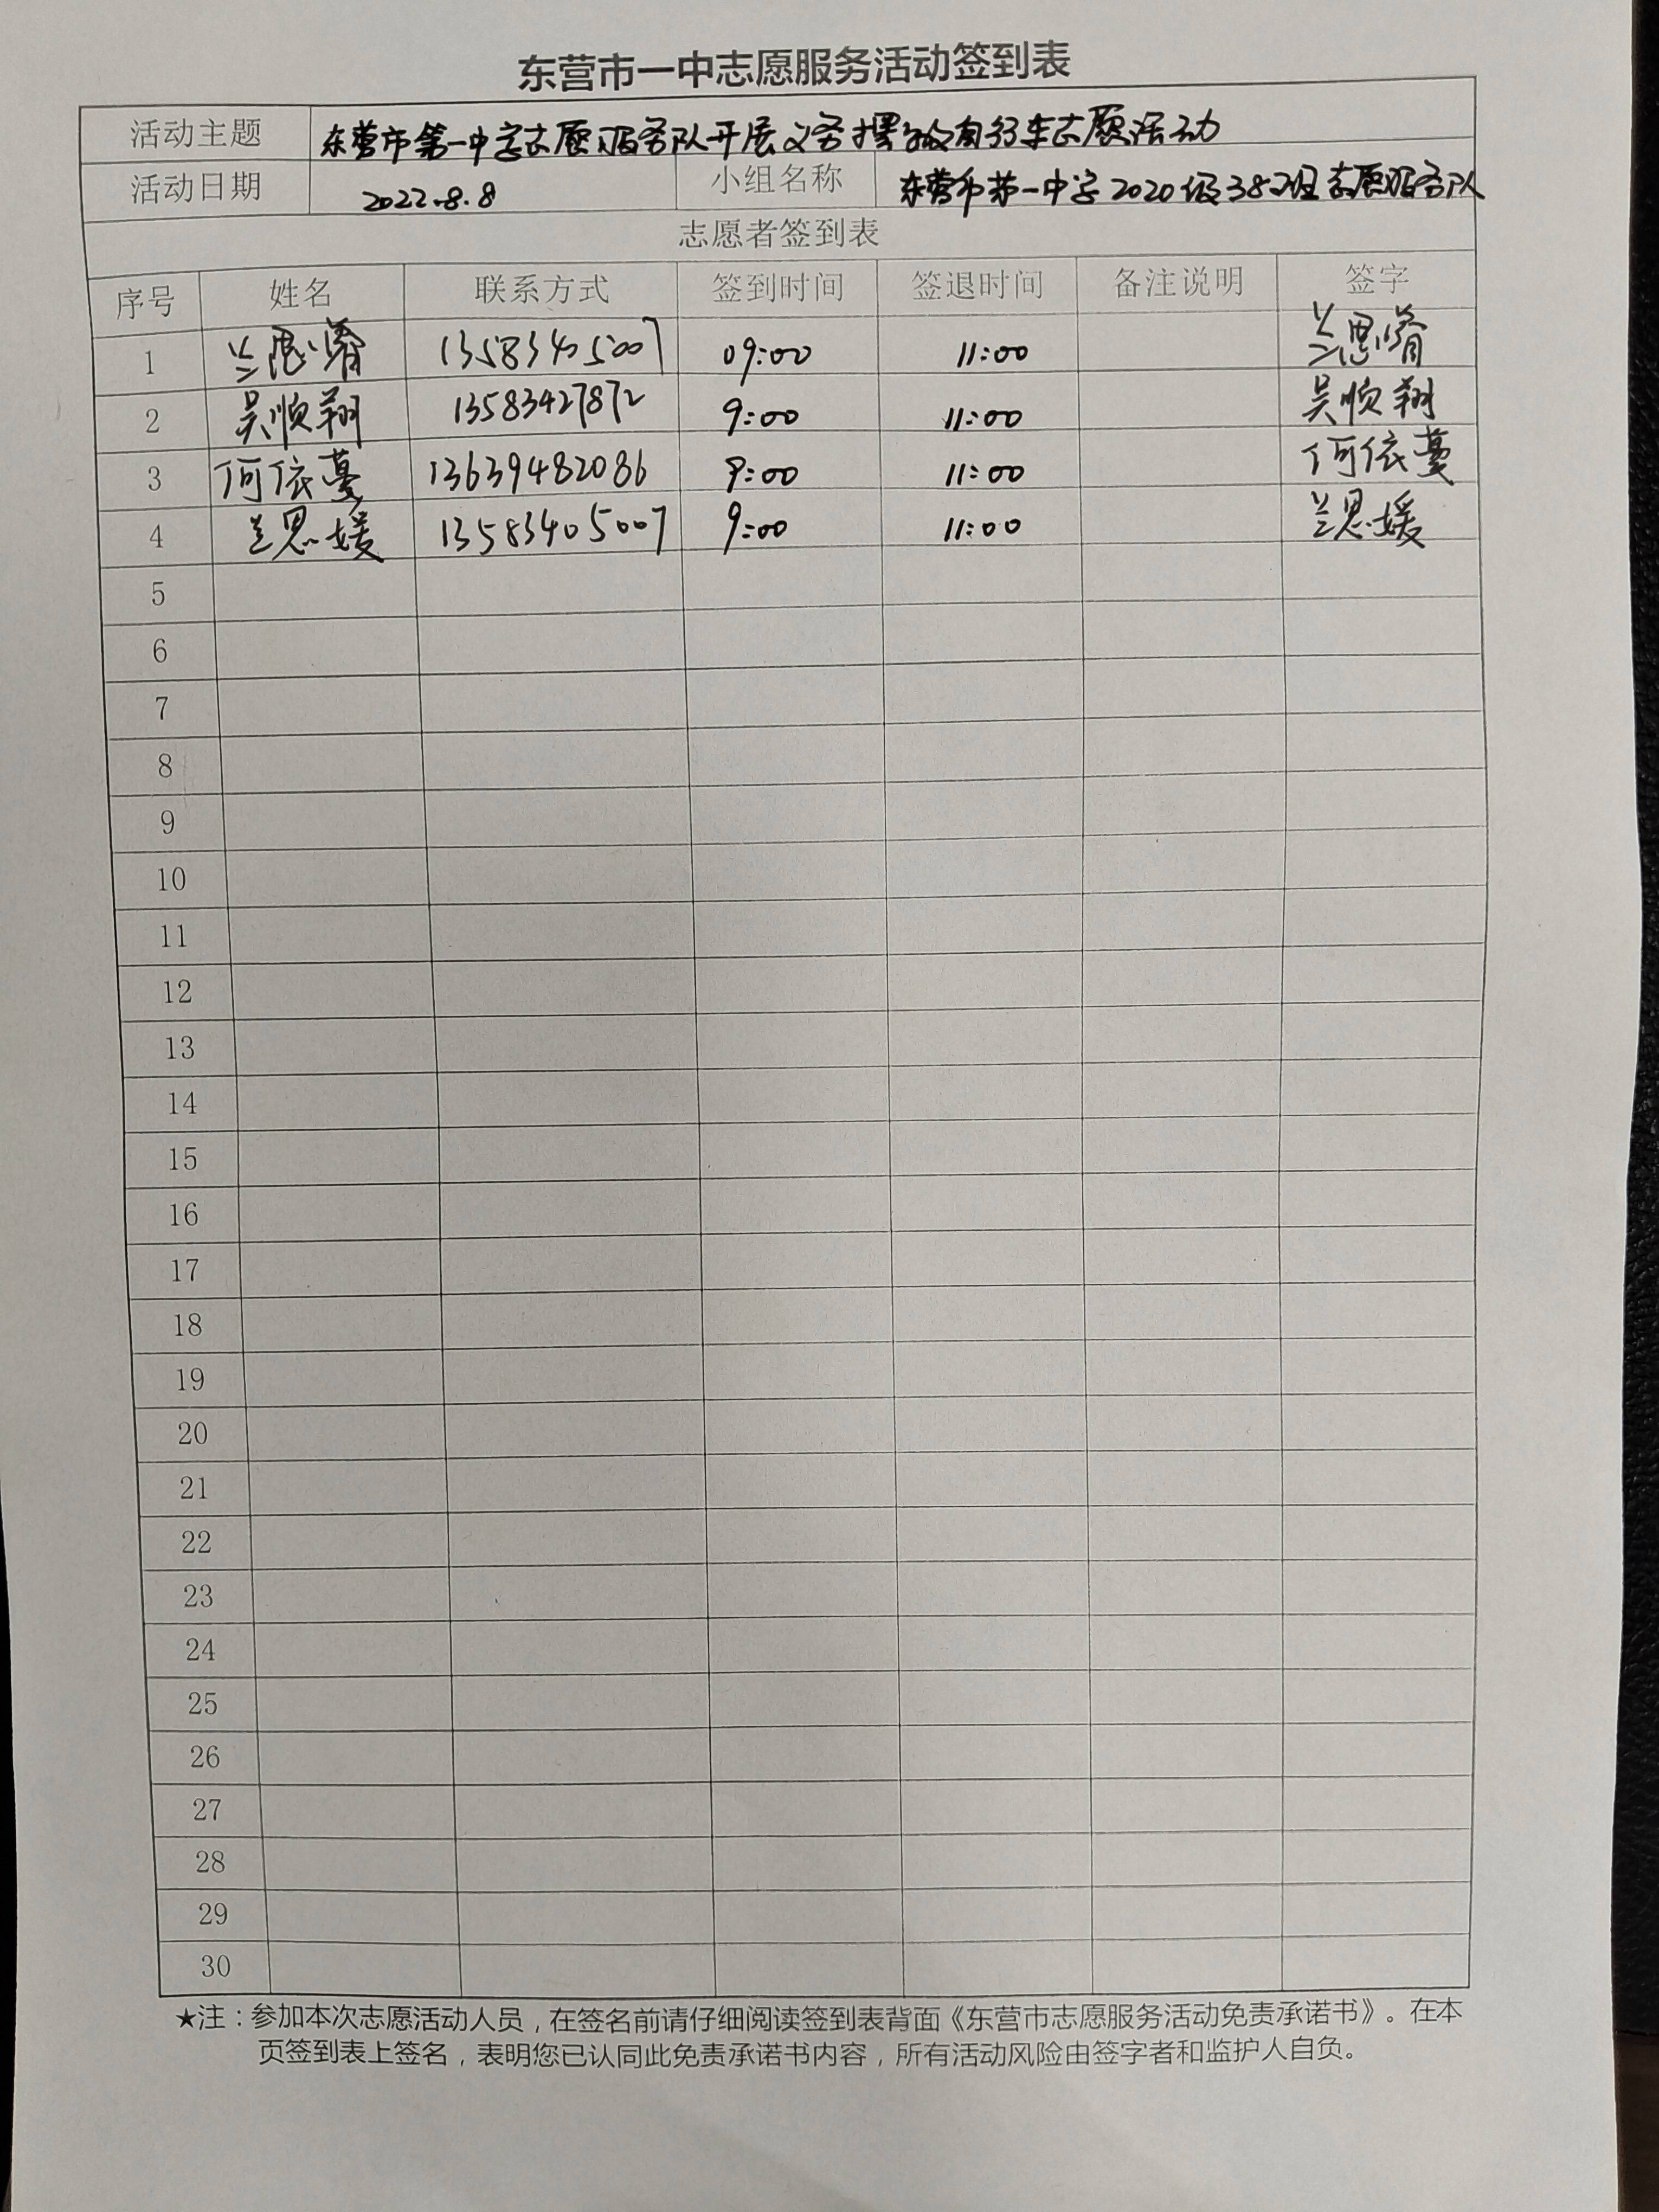 东营市一中志愿服务活动签到表
活动主题 东营市第一中学志愿服务队开展义务摆放自行车志愿活动
活动日期 2022.8.8 小组名称 东营市第一中学2020级38班志愿服务队
志愿者签到表
序号 姓名 联系方式 签到时间 签退时间 备注说明 签字
1 兰思 13583405007 09:00 11:00 兰思
2 吴顺翔 13583427872 9:00 11:00 吴顺翔
3 何依蔓 13639482086 9:00 11:00 何依蔓
4 兰思媛 13583405007 9:00 11:00 兰思媛
5
6
7
8
9
10
11
12
13
14
15
16
17
18
19
20
21
22
23
24
25
26
27
28
29
30
★注：参加本次志愿活动人员，在签名前请仔细阅读签到表背面《东营市志愿服务活动免责承诺书》。在本
页签到表上签名，表明您已认同此免责承诺书内容，所有活动风险由签字者和监护人自负。